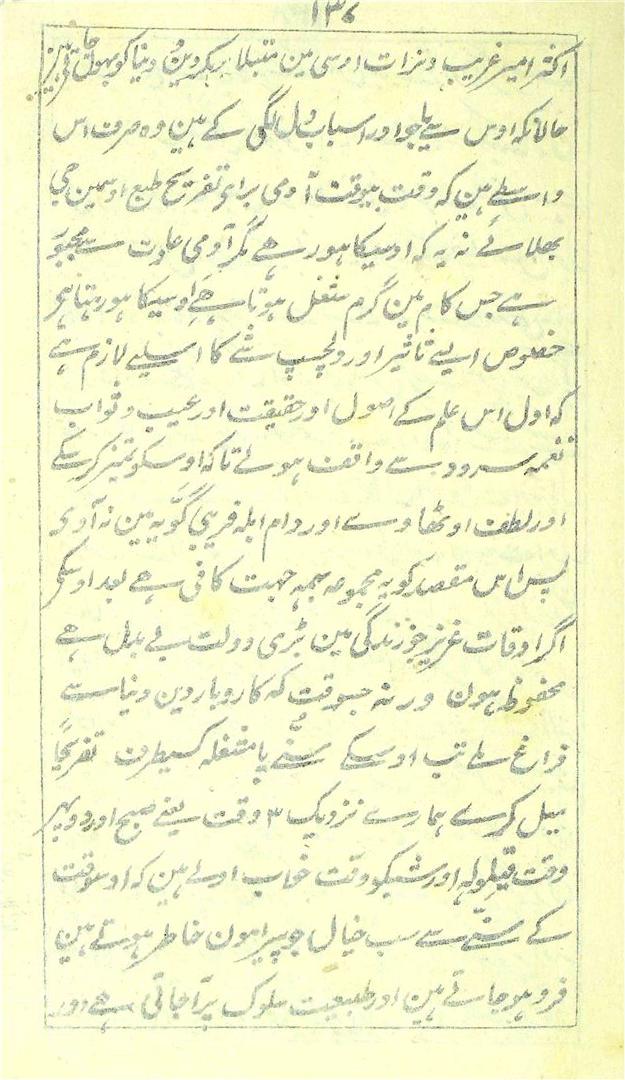 ۱۳۶
اکثر امیر غریب دن رات اوسی مین مبتلا ہوکر دین و دنیا کو بھول جاتی ہین
حالانکہ اوس سے یا جو اور اسباب دل لگی کے ہین وہ صرف اس
واسطے ہین کہ وقت بیوقت آدمی برای تفریح طبع اوسمین جی
بھلائے نہ یہ کہ اوسیکا ہو رہے مگر آدمی عادت سے مجبور
ہے جس کام مین گرم شغل ہوتا ہے اوسیکا ہو رہتا ہے
خصوص ایسے تاثیر اور دلچسپ شے کا اسلیے لازم ہے
کہ اول اس علم کے اصول اور حقیقت اور عیب و ثواب
نغمہ سرود سے واقف ہولے تاکہ اوسکو تمیز کر سکے
اور لطف اوٹھاوے اور دام ابلہ فریبی گویہ مین نہ آوے
پس اس مقصد کو یہ مجموعہ ہمہ جہت کافی ہے بعد اوسکے
اگر اوقات عزیز جو زندگی مین بڑی دولت بے بدل ہے
محفوظ ہون ورنہ جسوقت کہ کاروبار دین دنیا سے
فراغ ملے تب اوسکے سننے یا مشغلہ کسیطرف تفریحًا
میل کرے ہمارے نزدیک ۳ وقت یعنے صبح اور دوپہر
وقت قیلولہ اور شبکو وقت خواب اولے ہین کہ اوسوقت
کے سننے سے سب خیال جو پیرامون خاطر ہوتے ہین
فرو ہو جاتے ہین اور طبیعت سلوک پر آجاتی ہے اور